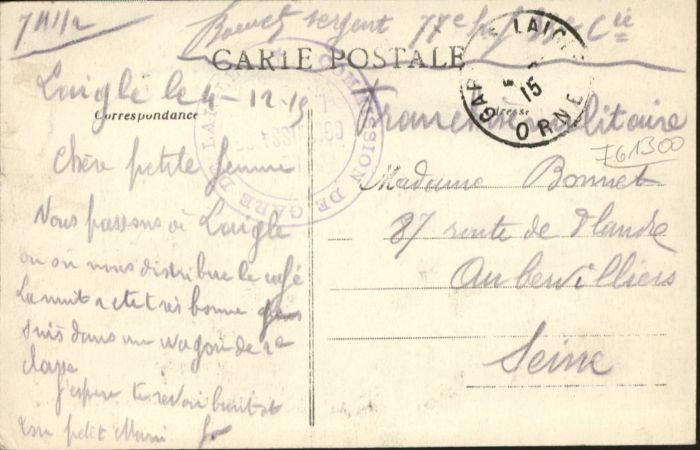 Bonnet sergent 77e Cie
CARTE POSTALE
Laigle le 4-12-15
Correspondance
Adresse
Franchise militaire
GARE DE LAIGLE
15
ORNE
COMMISSION DE GARE DE LAIGLE
761300
Chère petite femme
Nous passons à Laigle
ou on nous distribue le café
La nuit a été très bonne
suis dans un wagon de 2e
classe
J'espère te revoir bientot
Ton petit Mari
Madame Bonnet
87 route de Flandre
Aubervilliers
Seine